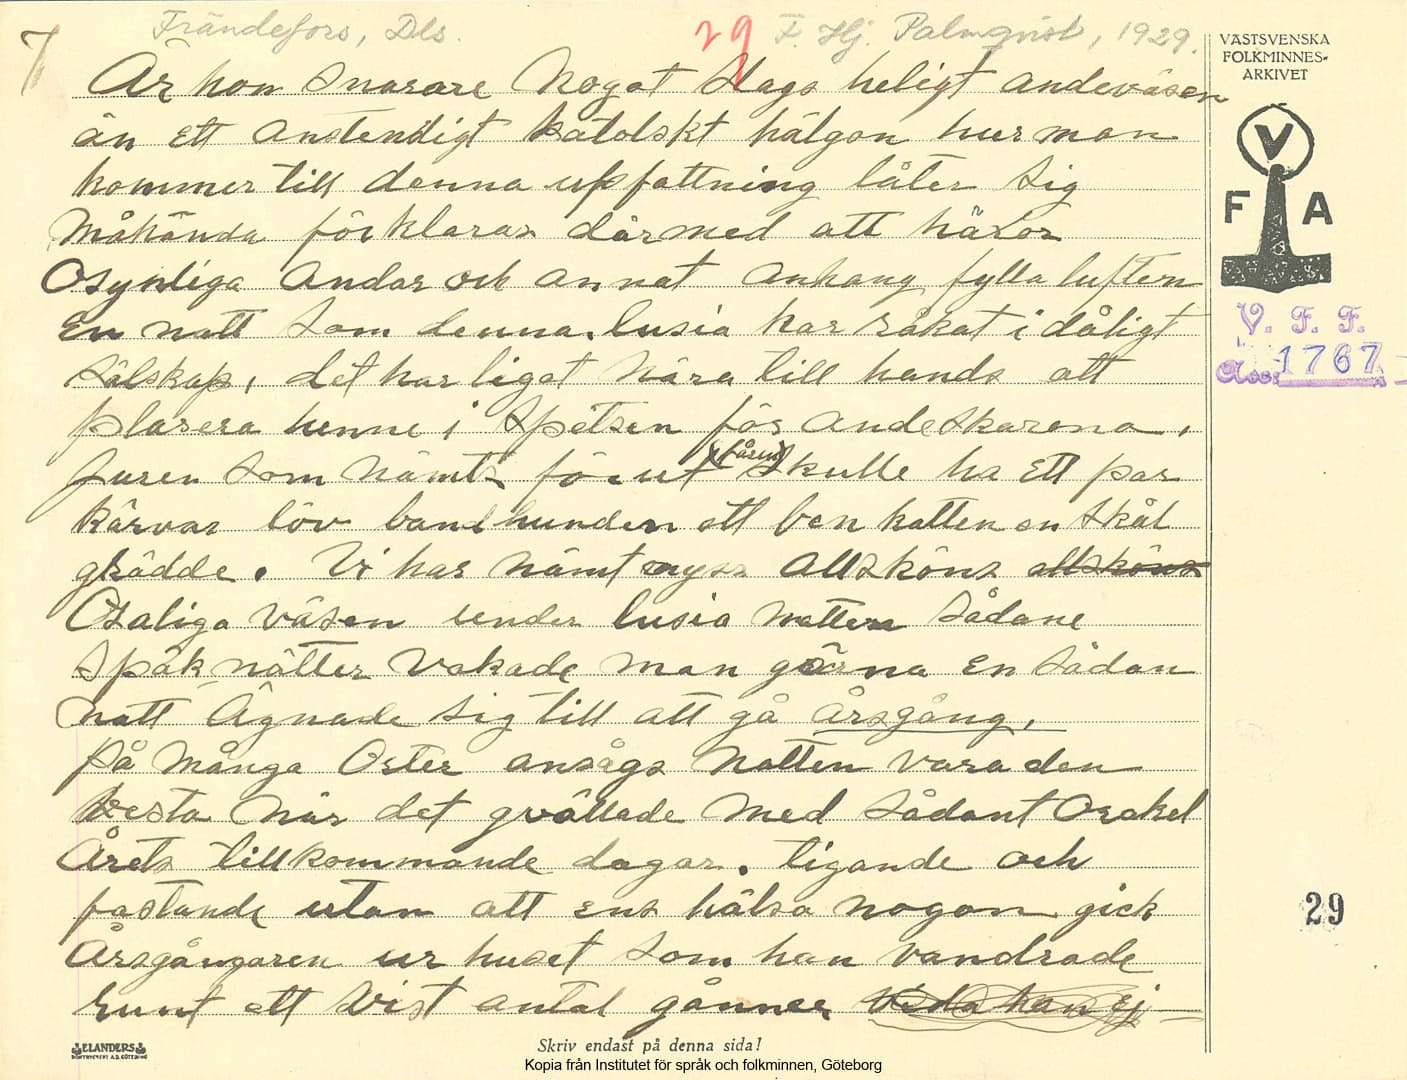 7
Frändefors, Dls.
29
F. Hj. Palmqvist, 1929.
VÄSTSVENSKA
FOLKMINNES-
ARKIVET
V
F A
V. F. F.
Acc: 1767
Är hon snarare Nogot slags heligt andeväsen
än ett anstendigt katolskt hälgon hur man
kommer till denna uppfattning låter sig
Måhända förklaras därmed att häxor
Osynliga Andar och annat anhang fylla luften
En natt som denna. lusia har råkat i dåligt
sälskap, det har ligat Nära till hands att
plasera henne i spetsen för andeskarena.
Juren som Nämts förut (fåren) skulle ha ett par
kärvar löv bandhunden ett ben katten en skål
grädde. Vi har nämt nyss allsköns allsköns
Osaliga väsen under lusia natten sådane
spöknätter vakade man gärna en sådan
natt Ägnade sig till att gå årsgång,
På Många Orter ansågs Natten vara den
besta när det gvällade med sådant Orakel
Årets tillkommande dagar. tigande och
fastande utan att ens hälsa nogon gick
Årsgångaren ur huset som han vandrade
runt ett vist antal gånner
29
ELANDERS
BOKTRYCKERI A.B. GÖTEBORG
Skriv endast på denna sida!
Kopia från Institutet för språk och folkminnen, Göteborg